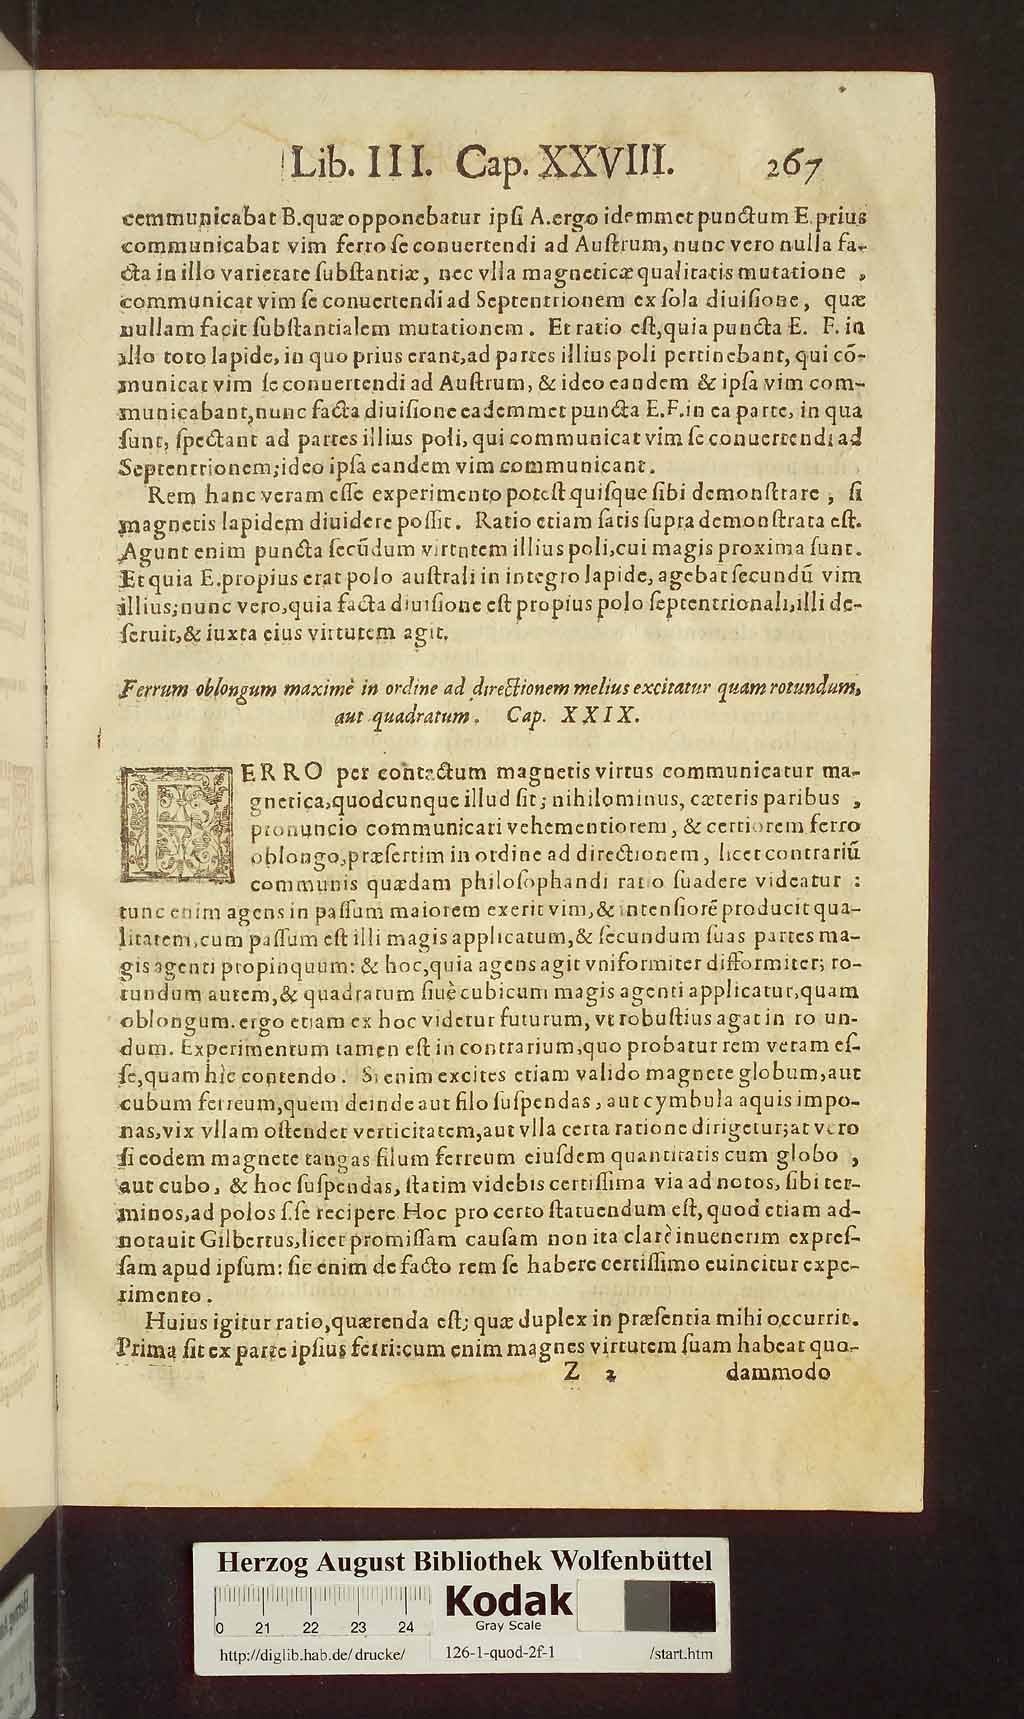 Lib. III. Cap. XXVIII. 267
communicabat B.quæ opponebatur ipſi A.ergo idemmet punctum E.prius
communicabat vim ferro ſe conuertendi ad Auſtrum, nunc vero nulla fa-
cta in illo varietate ſubſtantiæ, nec vlla magneticæ qualitatis mutatione ,
communicat vim ſe conuertendi ad Septentrionem ex ſola diuiſione, quæ
nullam facit ſubſtantialem mutationem. Et ratio eſt,quia puncta E. F. in
illo toto lapide, in quo prius erant,ad partes illius poli pertinebant, qui cõ-
municat vim ſe conuertendi ad Auſtrum, & ideo eandem & ipſa vim com-
municabant,nunc facta diuiſione eademmet puncta E.F.in ea parte, in qua
ſunt, ſpectant ad partes illius poli, qui communicat vim ſe conuertendi ad
Septentrionem;ideo ipſa eandem vim communicant.
Rem hanc veram eſſe experimento poteſt quiſque ſibi demonſtrare , ſi
magnetis lapidem diuidere poſſit. Ratio etiam ſatis ſupra demonſtrata eſt.
Agunt enim puncta ſecũdum virtutem illius poli,cui magis proxima ſunt.
Et quia E.propius erat polo auſtrali in integro lapide, agebat ſecundũ vim
illius;nunc vero,quia facta diuiſione eſt propius polo ſeptentrionali,illi de-
ſeruit,& iuxta eius virtutem agit.
Ferrum oblongum maximè in ordine ad directionem melius excitatur quam rotundum,
aut quadratum. Cap. XXIX.
FERRO per contactum magnetis virtus communicatur ma-
gnetica,quodcunque illud ſit; nihilominus, cæteris paribus ,
pronuncio communicari vehementiorem, & certiorem ferro
oblongo,præſertim in ordine ad directionem, licet contrariũ
communis quædam philoſophandi ratio ſuadere videatur :
tunc enim agens in paſſum maiorem exerit vim,& intenſiorẽ producit qua-
litatem,cum paſſum eſt illi magis applicatum,& ſecundum ſuas partes ma-
gis agenti propinquum: & hoc,quia agens agit vniformiter difformiter; ro-
tundum autem,& quadratum ſiuè cubicum magis agenti applicatur,quam
oblongum. ergo etiam ex hoc videtur futurum, vt robuſtius agat in ro un-
dum. Experimentum tamen eſt in contrarium,quo probatur rem veram eſ-
ſe,quam hìc contendo. Si enim excites etiam valido magnete globum,aut
cubum ferreum,quem deinde aut filo ſuſpendas, aut cymbula aquis impo-
nas,vix vllam oſtendet verticitatem,aut vlla certa ratione dirigetur;at vero
ſi eodem magnete tangas filum ferreum eiuſdem quantitatis cum globo ,
aut cubo, & hoc ſuſpendas, ſtatim videbis certiſſima via ad notos, ſibi ter-
minos,ad polos ſeſe recipere. Hoc pro certo ſtatuendum eſt, quod etiam ad-
notauit Gilbertus,licet promiſſam cauſam non ita clarè inuenerim expreſ-
ſam apud ipſum: ſic enim de facto rem ſe habere certiſſimo euincitur expe-
rimento.
Huius igitur ratio,quærenda eſt; quæ duplex in præſentia mihi occurrit.
Prima ſit ex parte ipſius ferri:cum enim magnes virtutem ſuam habeat quo-
Z 2 dammodo
Herzog August Bibliothek Wolfenbüttel
0 21 22 23 24
Kodak
Gray Scale
http://diglib.hab.de/drucke/ 126-1-quod-2f-1 /start.htm